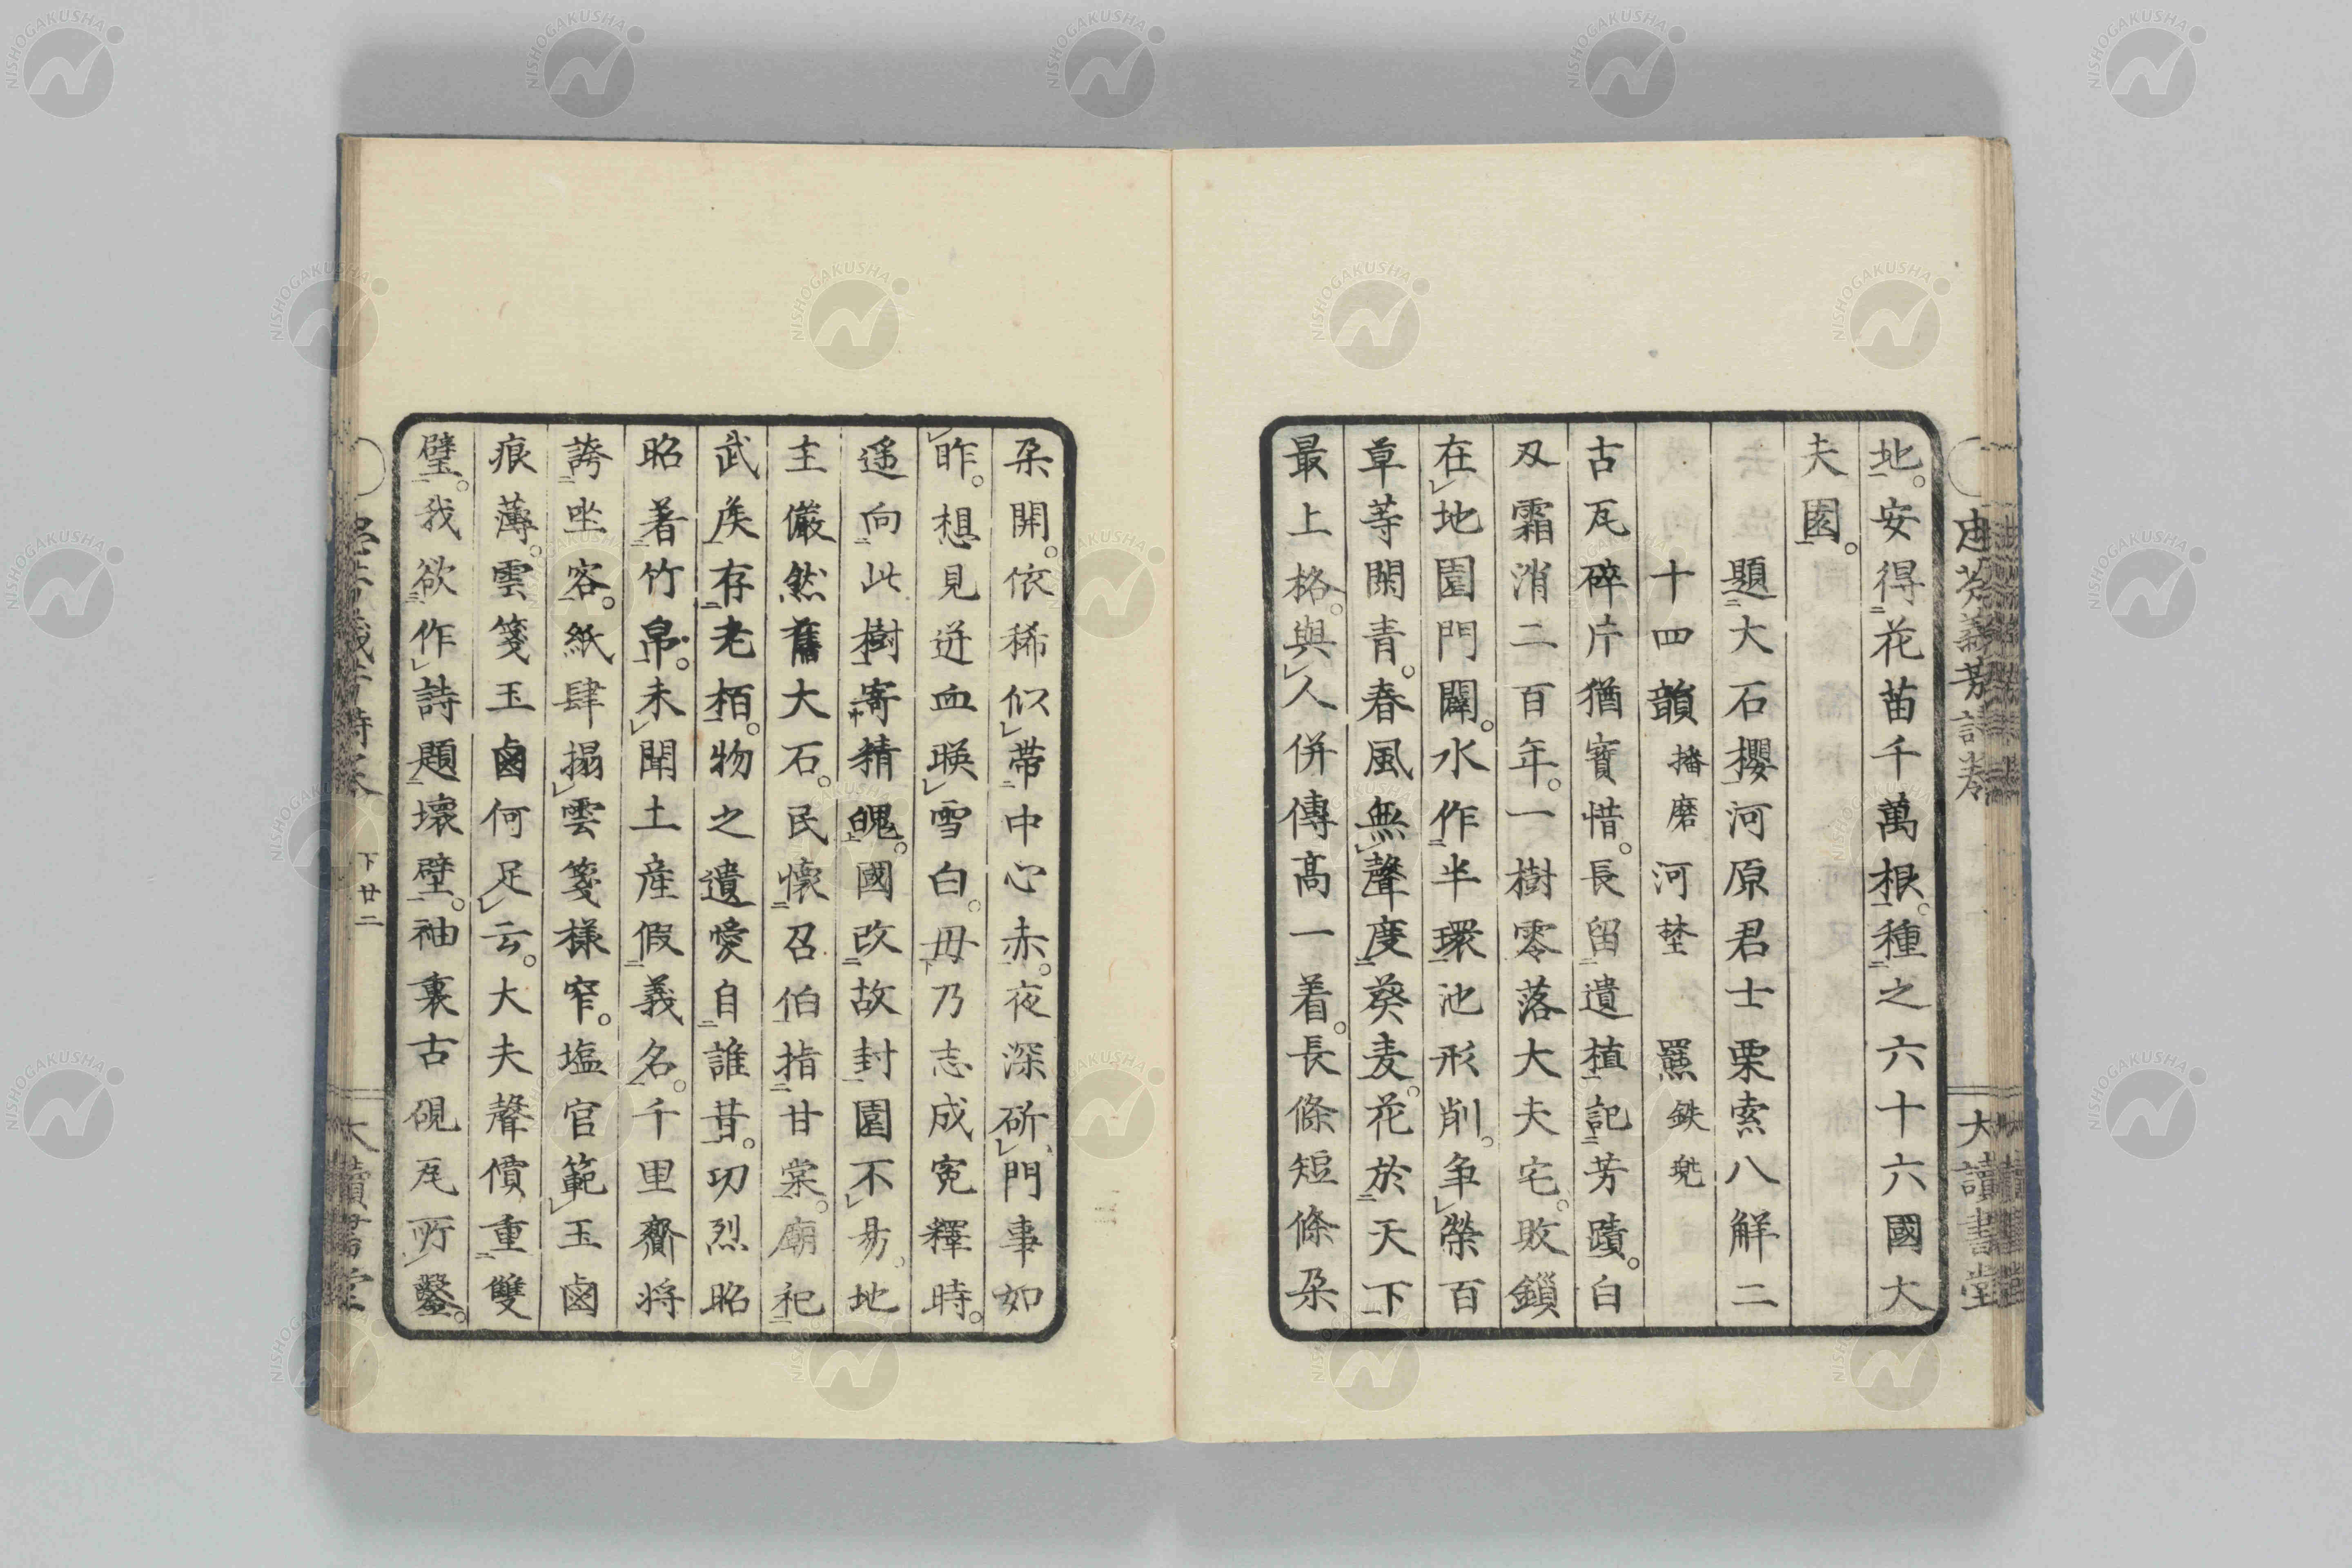 地。安得花苗千萬根。種之六十六國大
夫園。
題大石櫻河原君士栗索八解二
十四韻 播磨 河埜 羆 鉄兜
古瓦碎片猶寶惜。長留遺植記芳蹟。白
刄霜消二百年。一樹零落大夫宅。敗鎻
在地園門闢。水作半環池形削。争榮百
草等閑青。春風無聲度葵麦。花於天下
最上格。與人併傳高一着。長條短條朶
朶開。依稀似帶中心赤。夜深斫門事如
昨。想見迸血暎雪白。毋乃志成寃釋時。
遥向此樹寄精魄。國改故封園不易。地
主儼然舊大石。民懷召伯指甘棠。廟祀
武矦存老栢。物之遺愛自誰昔。功烈昭
昭著竹帛。未聞土産假義名。千里齎将
誇坐客。紙肆搨雲箋様窄。塩官範玉鹵
痕薄。雲箋玉鹵何足云。大夫聲價重雙
璧。我欲作詩題壊壁。袖裏古硯瓦所鑿。
忠芳義芳詩巻
大讀書堂
下廿二
NISHOGAKUSHA